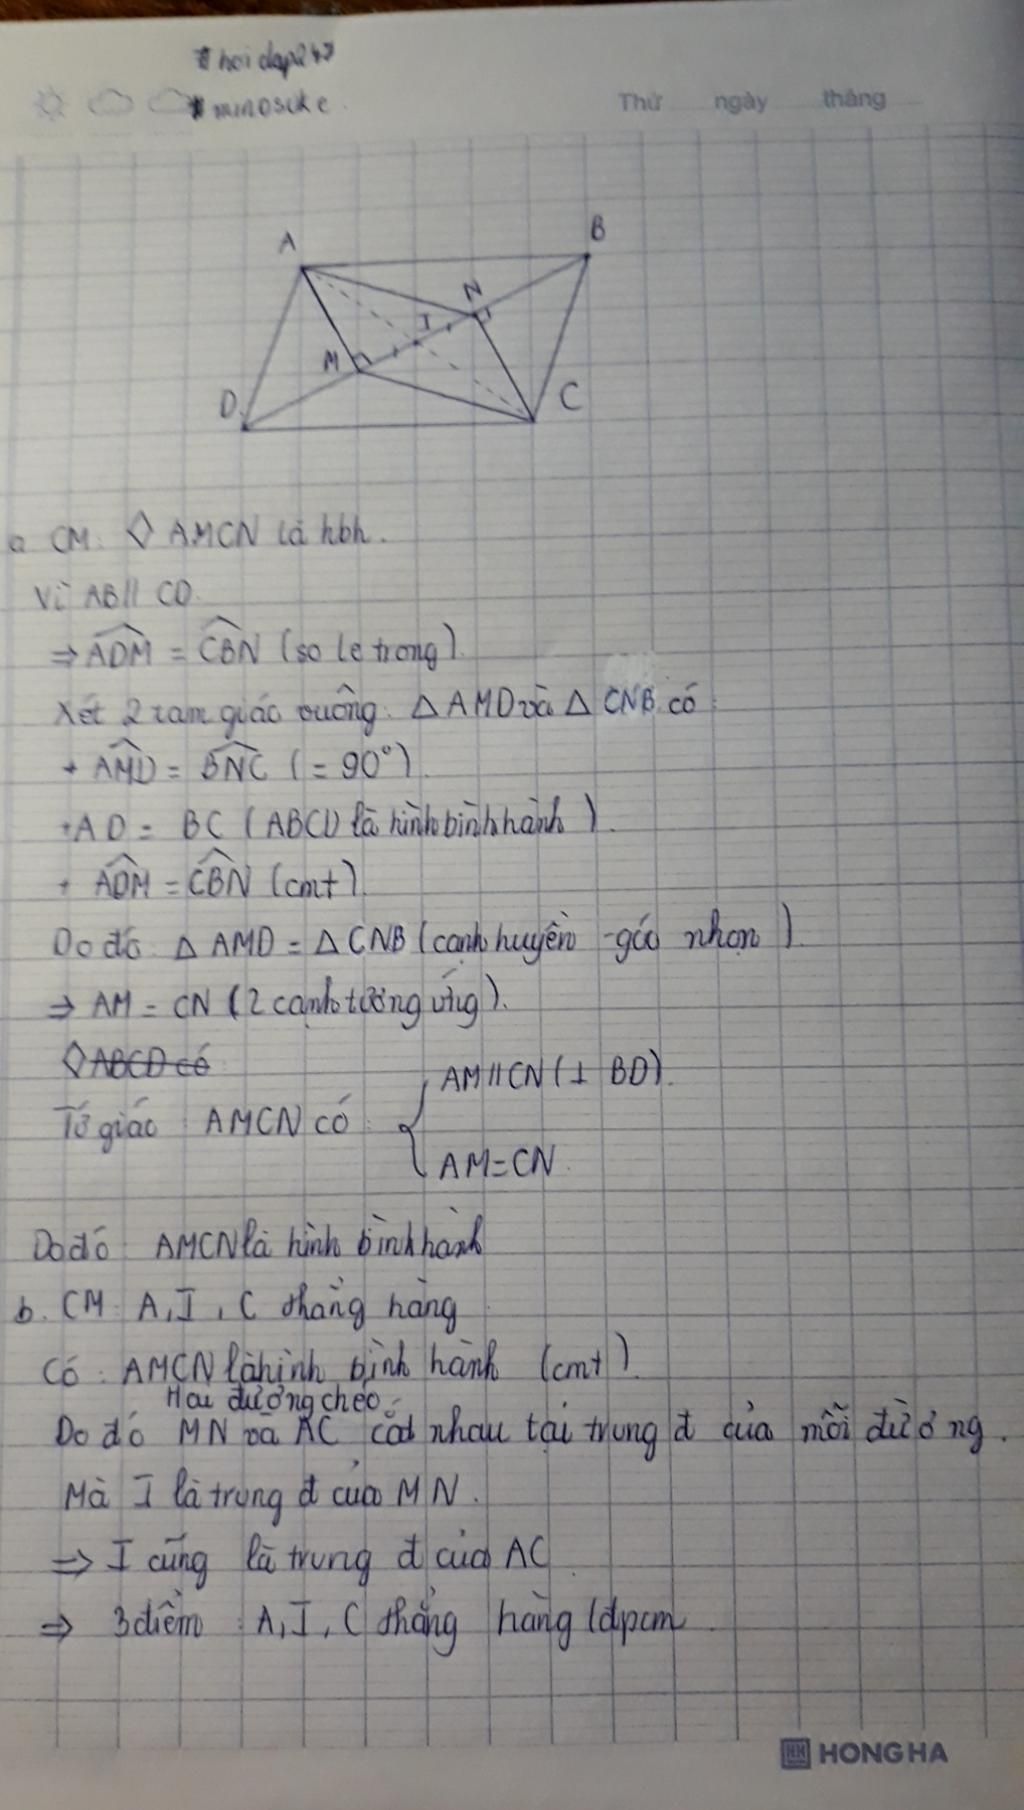 # hoidap247
# minosuke.
Thứ ngày tháng
A
B
N
I
M
D
C
a. CM: ◇ AMCN là hbh.
Vì AB // CD.
⇒ ADM = CBN (so le trong).
Xét 2 tam giác vuông: Δ AMD và Δ CNB có:
+ AMD = BNC (= 90°).
+ AD = BC (ABCD là hình bình hành).
+ ADM = CBN (cmt).
Do đó: Δ AMD = Δ CNB (cạnh huyền - góc nhọn)
⇒ AM = CN (2 cạnh tương ứng).
◇ ABCD có
AM // CN (⊥ BD).
Tứ giác AMCN có:
AM = CN.
Do đó: AMCN là hình bình hành
b. CM: A, I, C thẳng hàng.
Có: AMCN là hình bình hành (cmt).
Hai đường chéo
Do đó MN và AC cắt nhau tại trung đ của mỗi đường.
Mà I là trung đ của MN.
⇒ I cũng là trung đ của AC
⇒ 3 điểm: A, I, C thẳng hàng (đpcm.
HH HONG HA